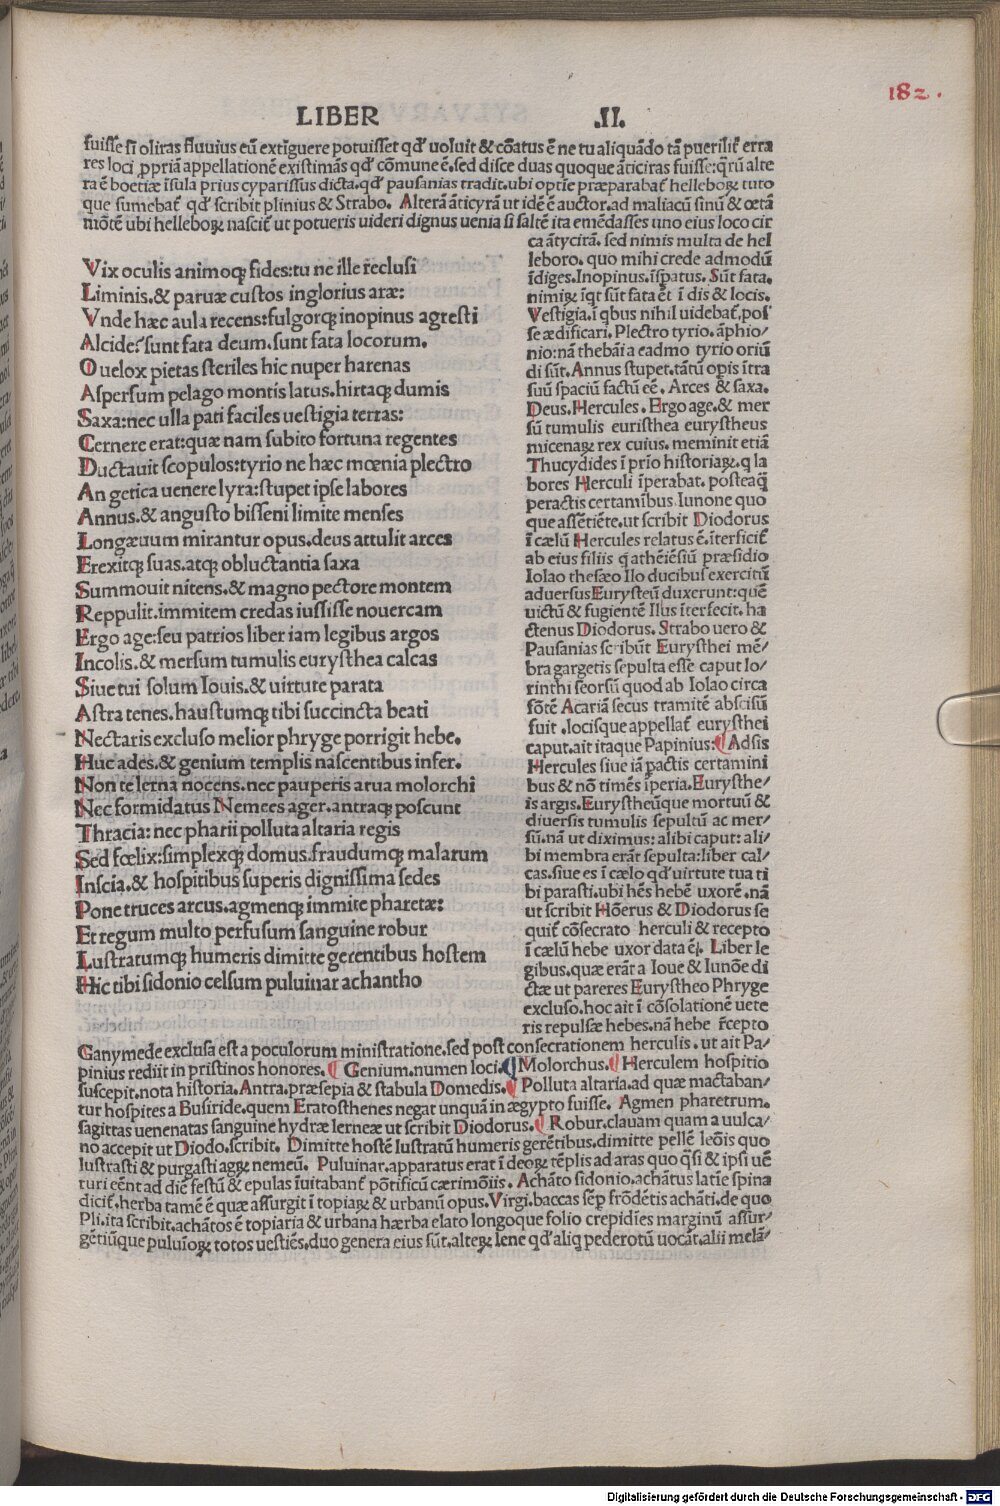 182.
LIBER .II.
fuisse si oliras fluuius eū extīguere potuisset qđ uoluit & cōatus ē ne tu aliquādo tā puerilit̄ erra
res loci ꝓpriā appellationē existimās qđ cōmune ē. sed disce duas quoque āticiras fuisse: q̄rū alte
ra ē boetiæ īsula prius cyparissus dicta. qđ pausanias tradit. ubi optīe præparabat̄ helleboꝝ tuto
que sumebat̄ qđ scribit plinius & Strabo. Alterā āticyrā ut idē ē auctor. ad maliacū sinū & œtā
mōtē ubi helleboꝝ nascit̄ ut potueris uideri dignus uenia si saltē ita emēdasses uno eius loco cir
Vix oculis animoqꝫ fides: tu ne ille r̄clusi
Liminis. & paruæ custos inglorius aræ:
Vnde hæc aula recens: fulgorqꝫ inopinus agresti
Alcide? sunt fata deum. sunt fata locorum.
O uelox pietas steriles hic nuper harenas
Aspersum pelago montis latus. hirtaqꝫ dumis
Saxa: nec ulla pati faciles uestigia terras:
Cernere erat: quæ nam subito fortuna regentes
Ductauit scopulos: tyrio ne hæc mœnia plectro
An getica uenere lyra: stupet ipse labores
Annus. & angusto bisseni limite menses
Longæuum mirantur opus. deus attulit arces
Erexitqꝫ suas. atqꝫ obluctantia saxa
Summouit nitens. & magno pectore montem
Reppulit. immitem credas iussisse nouercam
Ergo age: seu patrios liber iam legibus argos
Incolis. & mersum tumulis eurysthea calcas
Siue tui solum Iouis. & uirtute parata
Astra tenes. haustumqꝫ tibi succincta beati
Nectaris excluso melior phryge porrigit hebe.
Huc ades. & genium templis nascentibus infer.
Non te lerna nocens. nec pauperis arua molorchi
Nec formidatus Nemees ager. antraqꝫ poscunt
Thracia: nec pharii polluta altaria regis
Sed fœlix: simplexqꝫ domus. fraudumqꝫ malarum
Inscia. & hospitibus superis dignissima sedes
Pone truces arcus. agmenqꝫ immite pharetæ:
Et regum multo perfusum sanguine robur
Lustratumqꝫ humeris dimitte gerentibus hostem
Hic tibi sidonio celsum puluinar achantho
ca ātycirā. sed nimis multa de hel
leboro. quo mihi crede admodū
īdiges. Inopinus. īsꝑatus. Sūt fata.
nimiꝝ īqt sūt fata et̄ ī dis & locis.
Vestigia. ī qbus nihil uidebat̄. pos
se ædificari. Plectro tyrio. āphio/
nio: nā thebāi a cadmo tyrio oriū
di sūt. Annus stupet. tātū opis ītra
suū spaciū factū eē. Arces & saxa.
Deus. Hercules. Ergo age. & mer
sū tumulis euristhea eurystheus
micenaꝝ rex cuius. meminit etiā
Thucydides ī prīo historiaꝝ. q la
bores Herculi īperabat. posteaq̄
peractis certamībus. Iunone quo
que assētiēte. ut scribit Diodorus
ī cælū Hercules relatus ē. īterficit̄
ab eius filiis q athēiēsiū præsidio
Iolao thesæo Ilo ducibus exercitū
aduersus Eurysteū duxerunt: quē
uictū & fugientē Ilus īterfecit. ha
ctenus Diodorus. Strabo uero &
Pausanias scribūt Eurysthei mē/
bra gargetis sepulta esse caput Io/
rinthi seorsū quod ab Iolao circa
fōtē Acariā secus tramitē abscisū
fuit. locisque appellat̄ eurysthei
caput. ait itaque Papinius: Adsis
Hercules siue iā ꝑactis certamini
bus & nō timēs īperia. Eurysthe/
is argis. Eurystheūque mortuū &
diuersis tumulis sepultū ac mer/
sū. nā ut diximus: alibi caput: ali/
bi membra erāt sepulta: liber cal/
cas. siue es ī cælo qđ uirtute tua ti
bi parasti. ubi hēs hebē uxorē. nā
ut scribit Hōerus & Diodorus se
quit̄ cōsecrato herculi & recepto
ī cælū hebe uxor data ē. Liber le
gibus. quæ erāt a Ioue & Iunōe di
ctæ ut pareres Eurystheo Phryge
excluso. hoc ait ī cōsolationē uete
ris repulsæ hebes. nā hebe r̄cepto
Ganymede exclusa est a poculorum ministratione. sed post consecrationem herculis. ut ait Pa/
pinius rediit in pristinos honores. Genium. numen loci. Molorchus. Herculem hospitio
suscepit. nota historia. Antra. præsepia & stabula Domedis. Polluta altaria. ad quæ mactaban/
tur hospites a Busiride. quem Eratosthenes negat unquā in ægypto fuisse. Agmen pharetrum.
sagittas uenenatas sanguine hydræ lerneæ ut scribit Diodorus. Robur. clauam quam a uulca/
no accepit ut Diodo. scribit. Dimitte hostē lustratū humeris gerētibus. dimitte pellē leōis quo
lustrasti & purgasti agꝝ nemeū. Puluinar. apparatus erat ī deoꝝ tēplis ad aras quo q̄si & ipsi uē
turi eēnt ad diē festū & epulas īuitabant̄ pōtificū cærimōiis. Achāto sidonio. achātus latīe spina
dicit̄. herba tamē ē quæ assurgit ī topiaꝝ & urbanū opus. Virgi. baccas sēp frōdētis achāti. de quo
Pli. ita scribit. achātos ē topiaria & urbana hærba elato longoque folio crepidīes marginū assur/
gētiūque puluīoꝝ totos uestiēs. duo genera eius sūt. alteꝝ lene qđ aliq pederotū uocāt. alii melā/
Digitalisierung gefördert durch die Deutsche Forschungsgemeinschaft - DFG